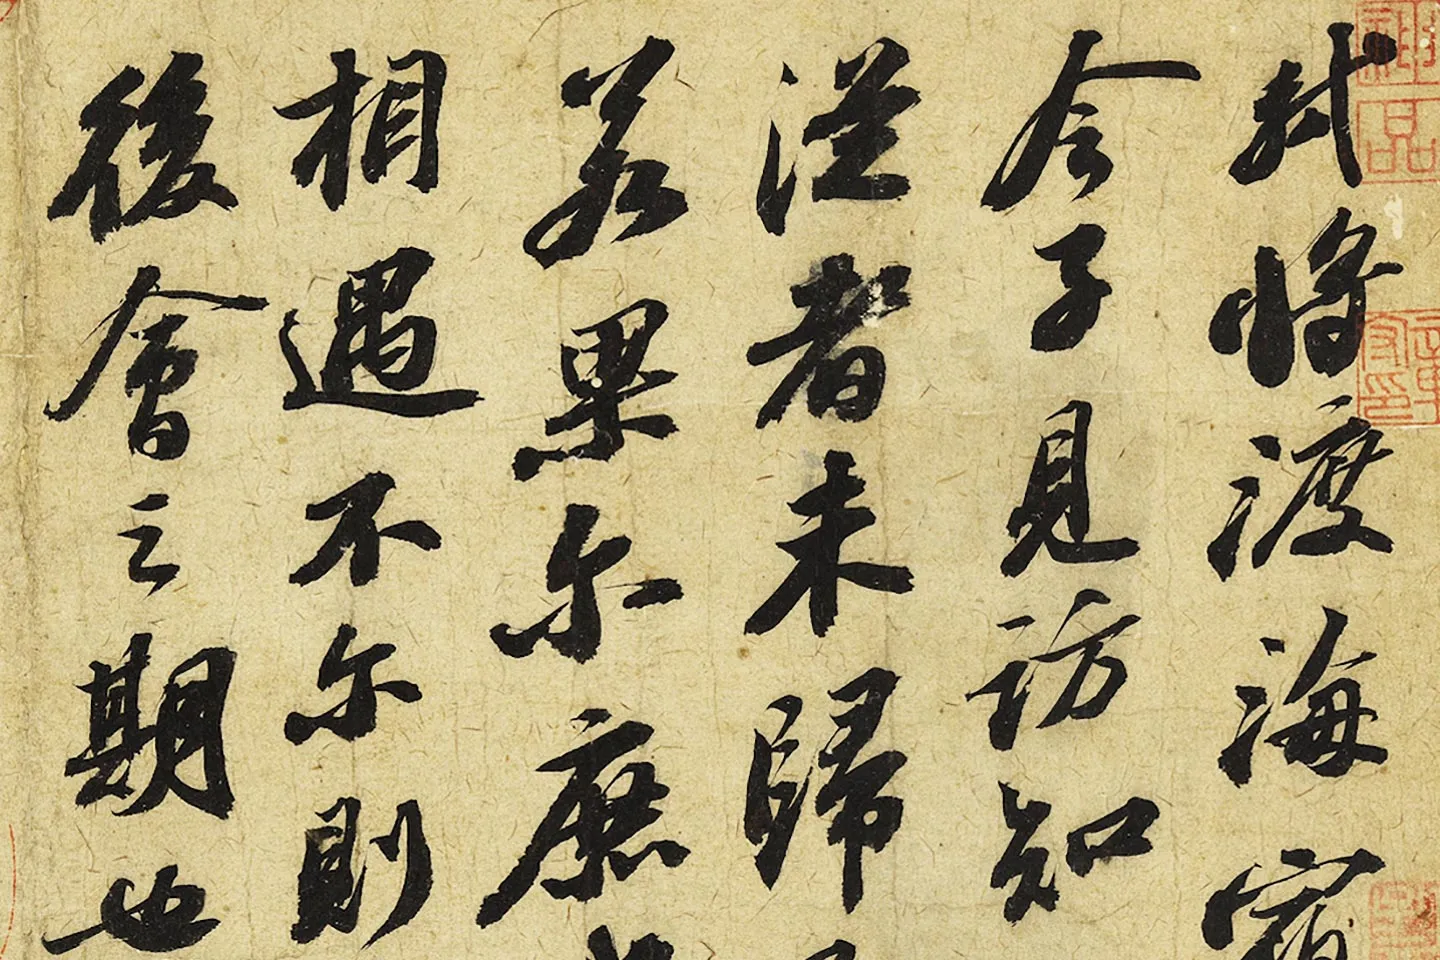 軾將渡海宿
令子見訪知
從者未歸
若果尔庶
相遇不尔則
後會之期也
神品